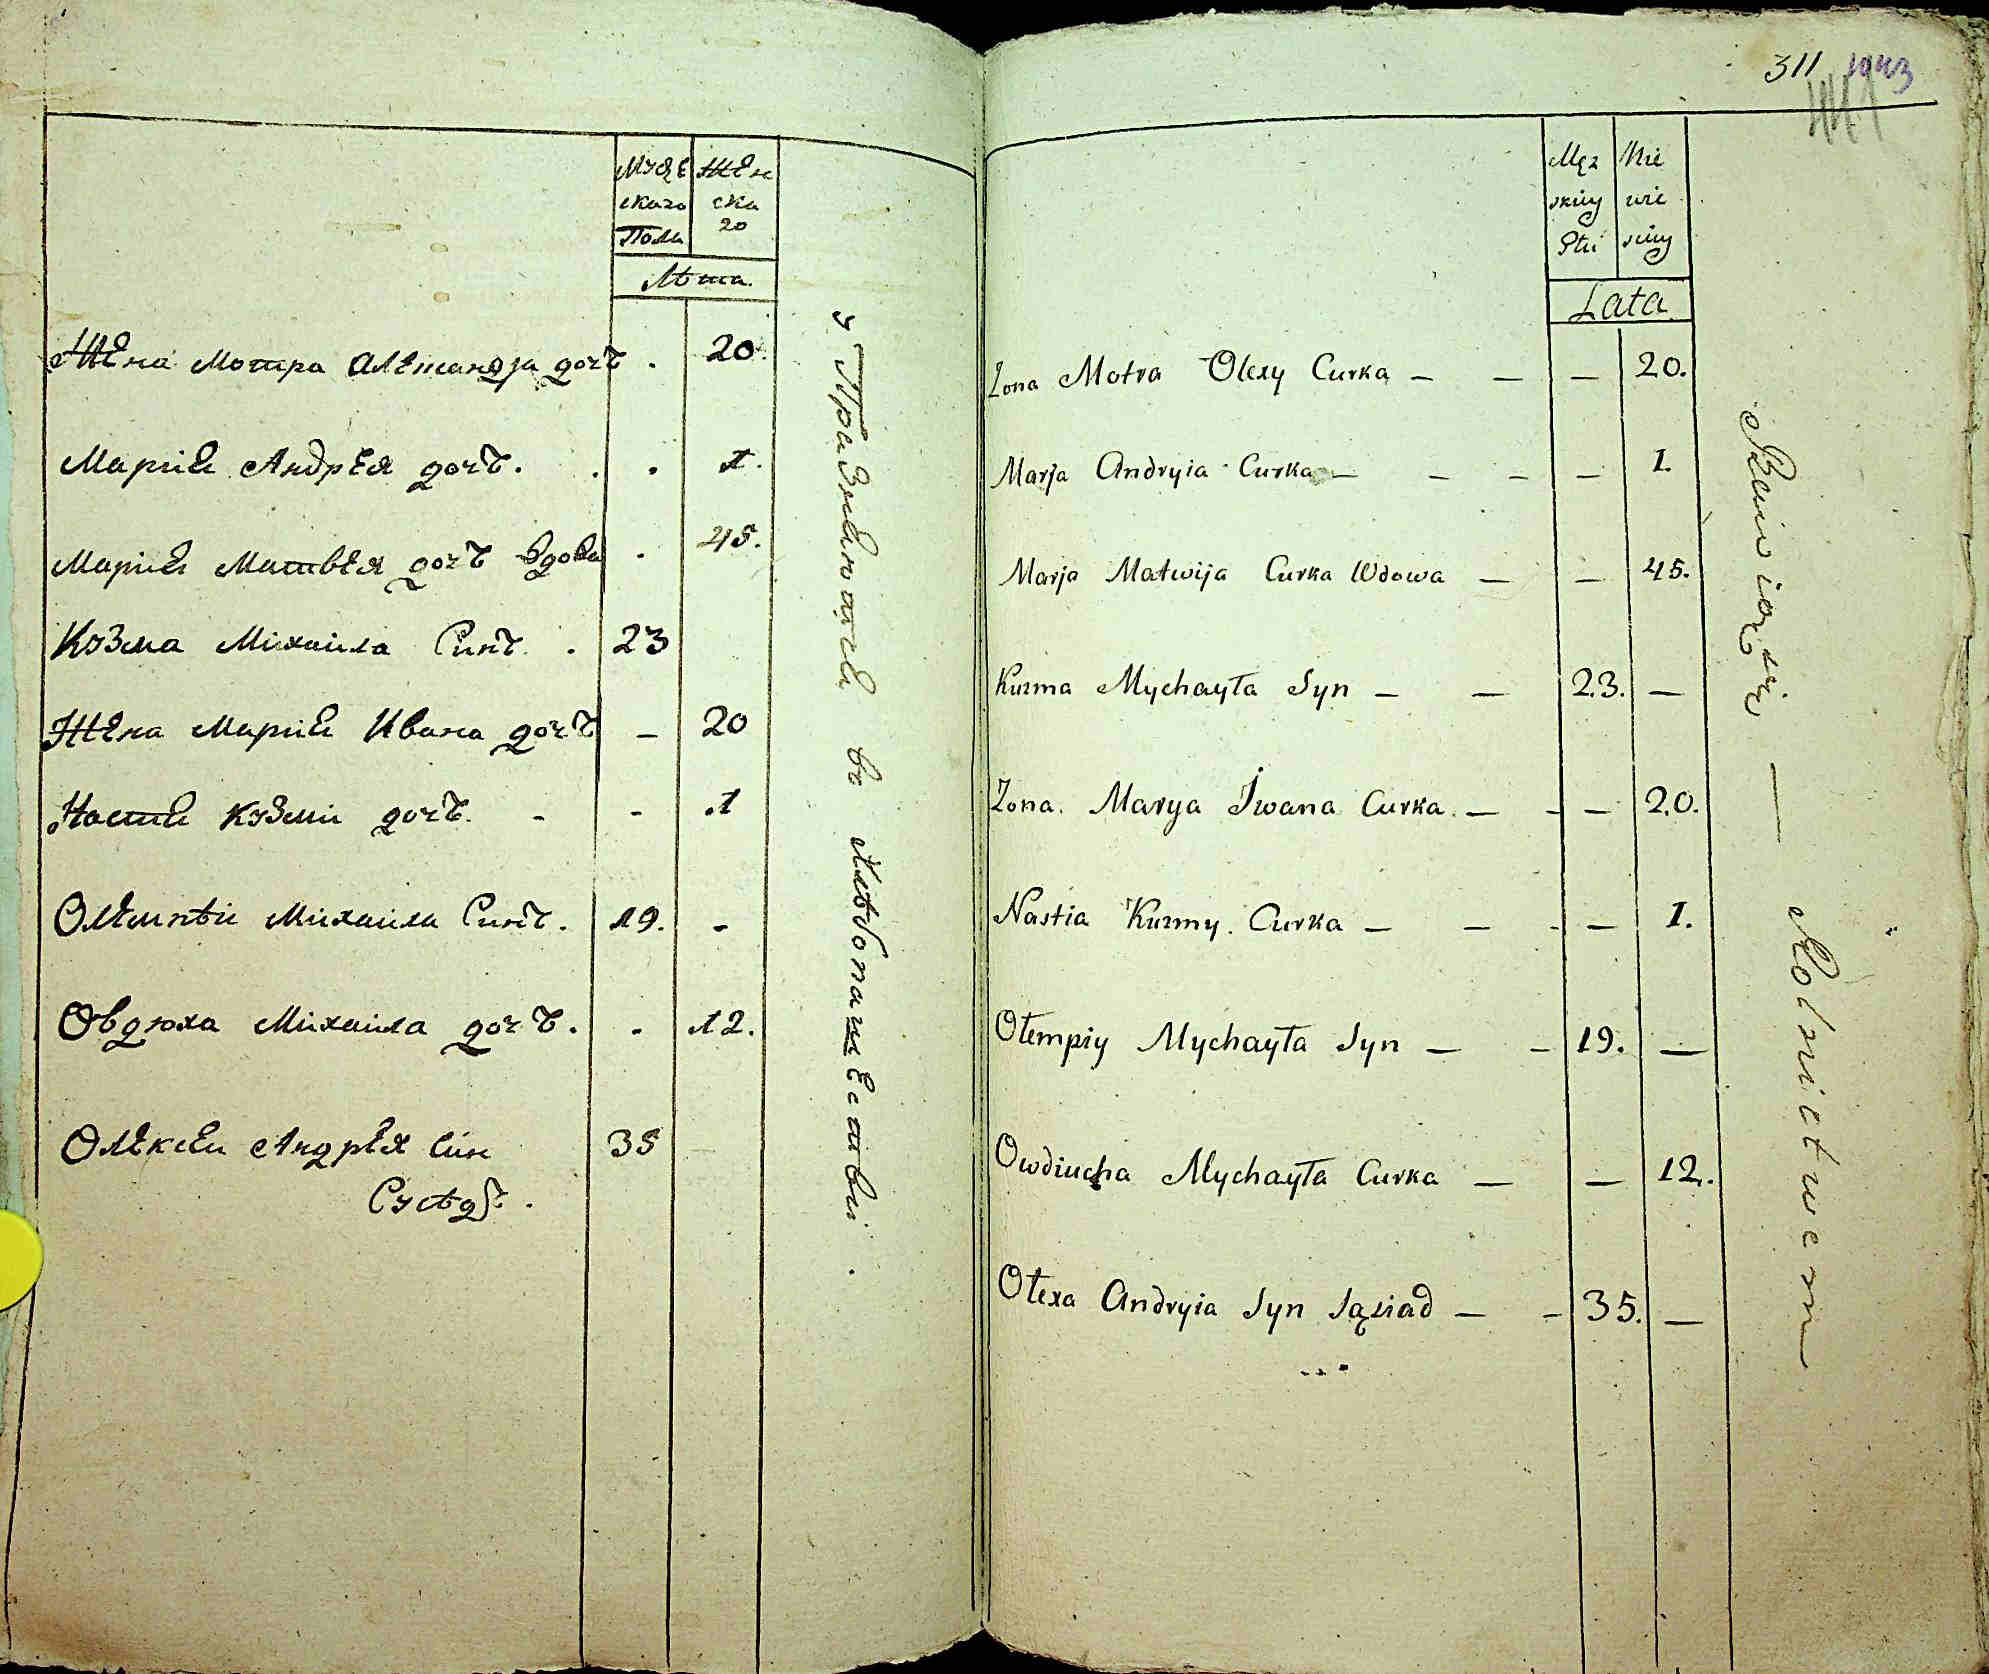 Мужескаго Пола
Женскаго
Лѣта.
Жена Мотра Александра дочъ . 20.
Мария Андрея дочъ . . . 1.
Мария Матвея дочъ вдова . 45.
Кузма Михаила Синъ . 23
Жена Мария Ивана дочъ – 20
Настия Кузми дочъ . - - 1
Олемпѣи Михаила Синъ . 19. -
Овдюха Михаила дочъ . . 12.
Олексеи Андрея син 35
Сусѣдъ .
у Пражняются въ Хлѣбопашестви .
311 1043
441
Męzskiey Płci
Niewieściey
Lata
Zona Motra Olexy Curka — — — 20.
Marja Andryia Curka — — — — 1.
Marja Matwija Curka Wdowa — — 45.
Kuzma Mychayła Syn — — 23. —
Zona. Marya Iwana Curka. — - — 20.
Nastia Kuzmy. Curka — — - — 1.
Ołempiy Mychayła Syn — - 19. —
Owdiucha Mychayła Curka — — 12.
Ołexa Andryia Syn Sąsiad — - 35. —
Bawią się — Rolnictwem